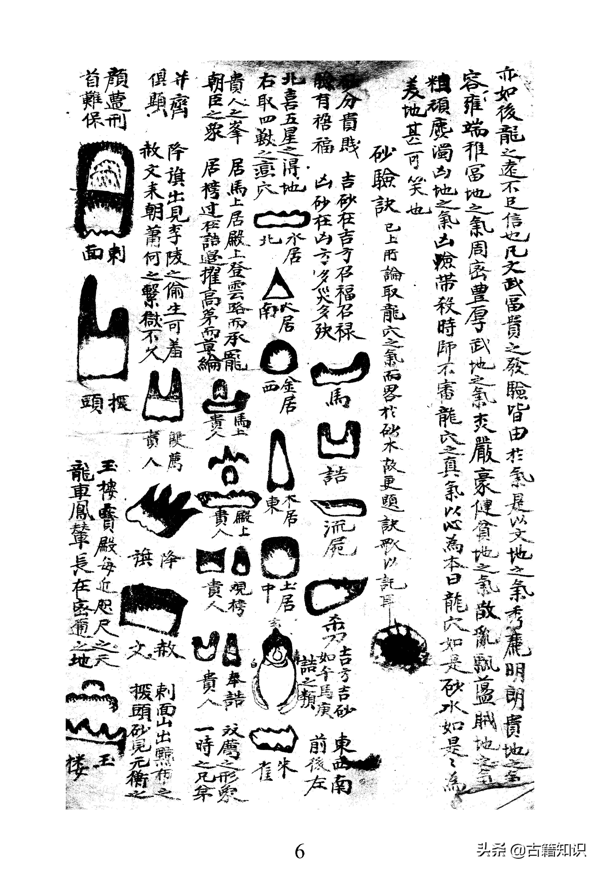 亦如後龍之遠不足信也凡文武富貴之發驗皆由於氣是以文地之氣秀麗明朗貴地之氣
容雍端雅富地之氣周密豊厚武地之氣嚴豪健貧地之氣散亂飄蕩賊地之氣
粗頑麁濁凶地之氣凶險帶殺時師不審龍穴之真氣以心為本曰龍穴如是砂水如是
美地甚可笑也
砂驗訣
已上所論取龍穴之氣而畧於砂水故更題訣歌以記耳
砂分貴賤
吉砂在吉方召福召祿
驗有禍福
凶砂在凶方多災多殃
馬
誥
流屍
吉方吉砂
如午馬庚
誥之類
東西南
前後左
北喜五星之得地
右取四獸之演穴
水居
北
火居
南
金居
西
木居
東
土居
中
朱
雀
貴人之峯
居馬上居殿上登雲路而承寵
朝臣之象
馬上
貴人
殿上
貴人
觀榜
貴人
奉誥
貴人
文薦之形象
一時之兄弟
并齊
俱顯
降旗出見李陵之偷生可羞
赦文未朝蕭何之繫獄不久
薦
貴人
降
旗
赦
文
刺面山出黥布之
掀頭砂見元衡之
顏遭刑
首難保
刺
面
掀
頭
玉樓寶殿每近咫尺之天
龍車鳳輦長在密邇之地
玉
樓
6
头条 @古籍知识